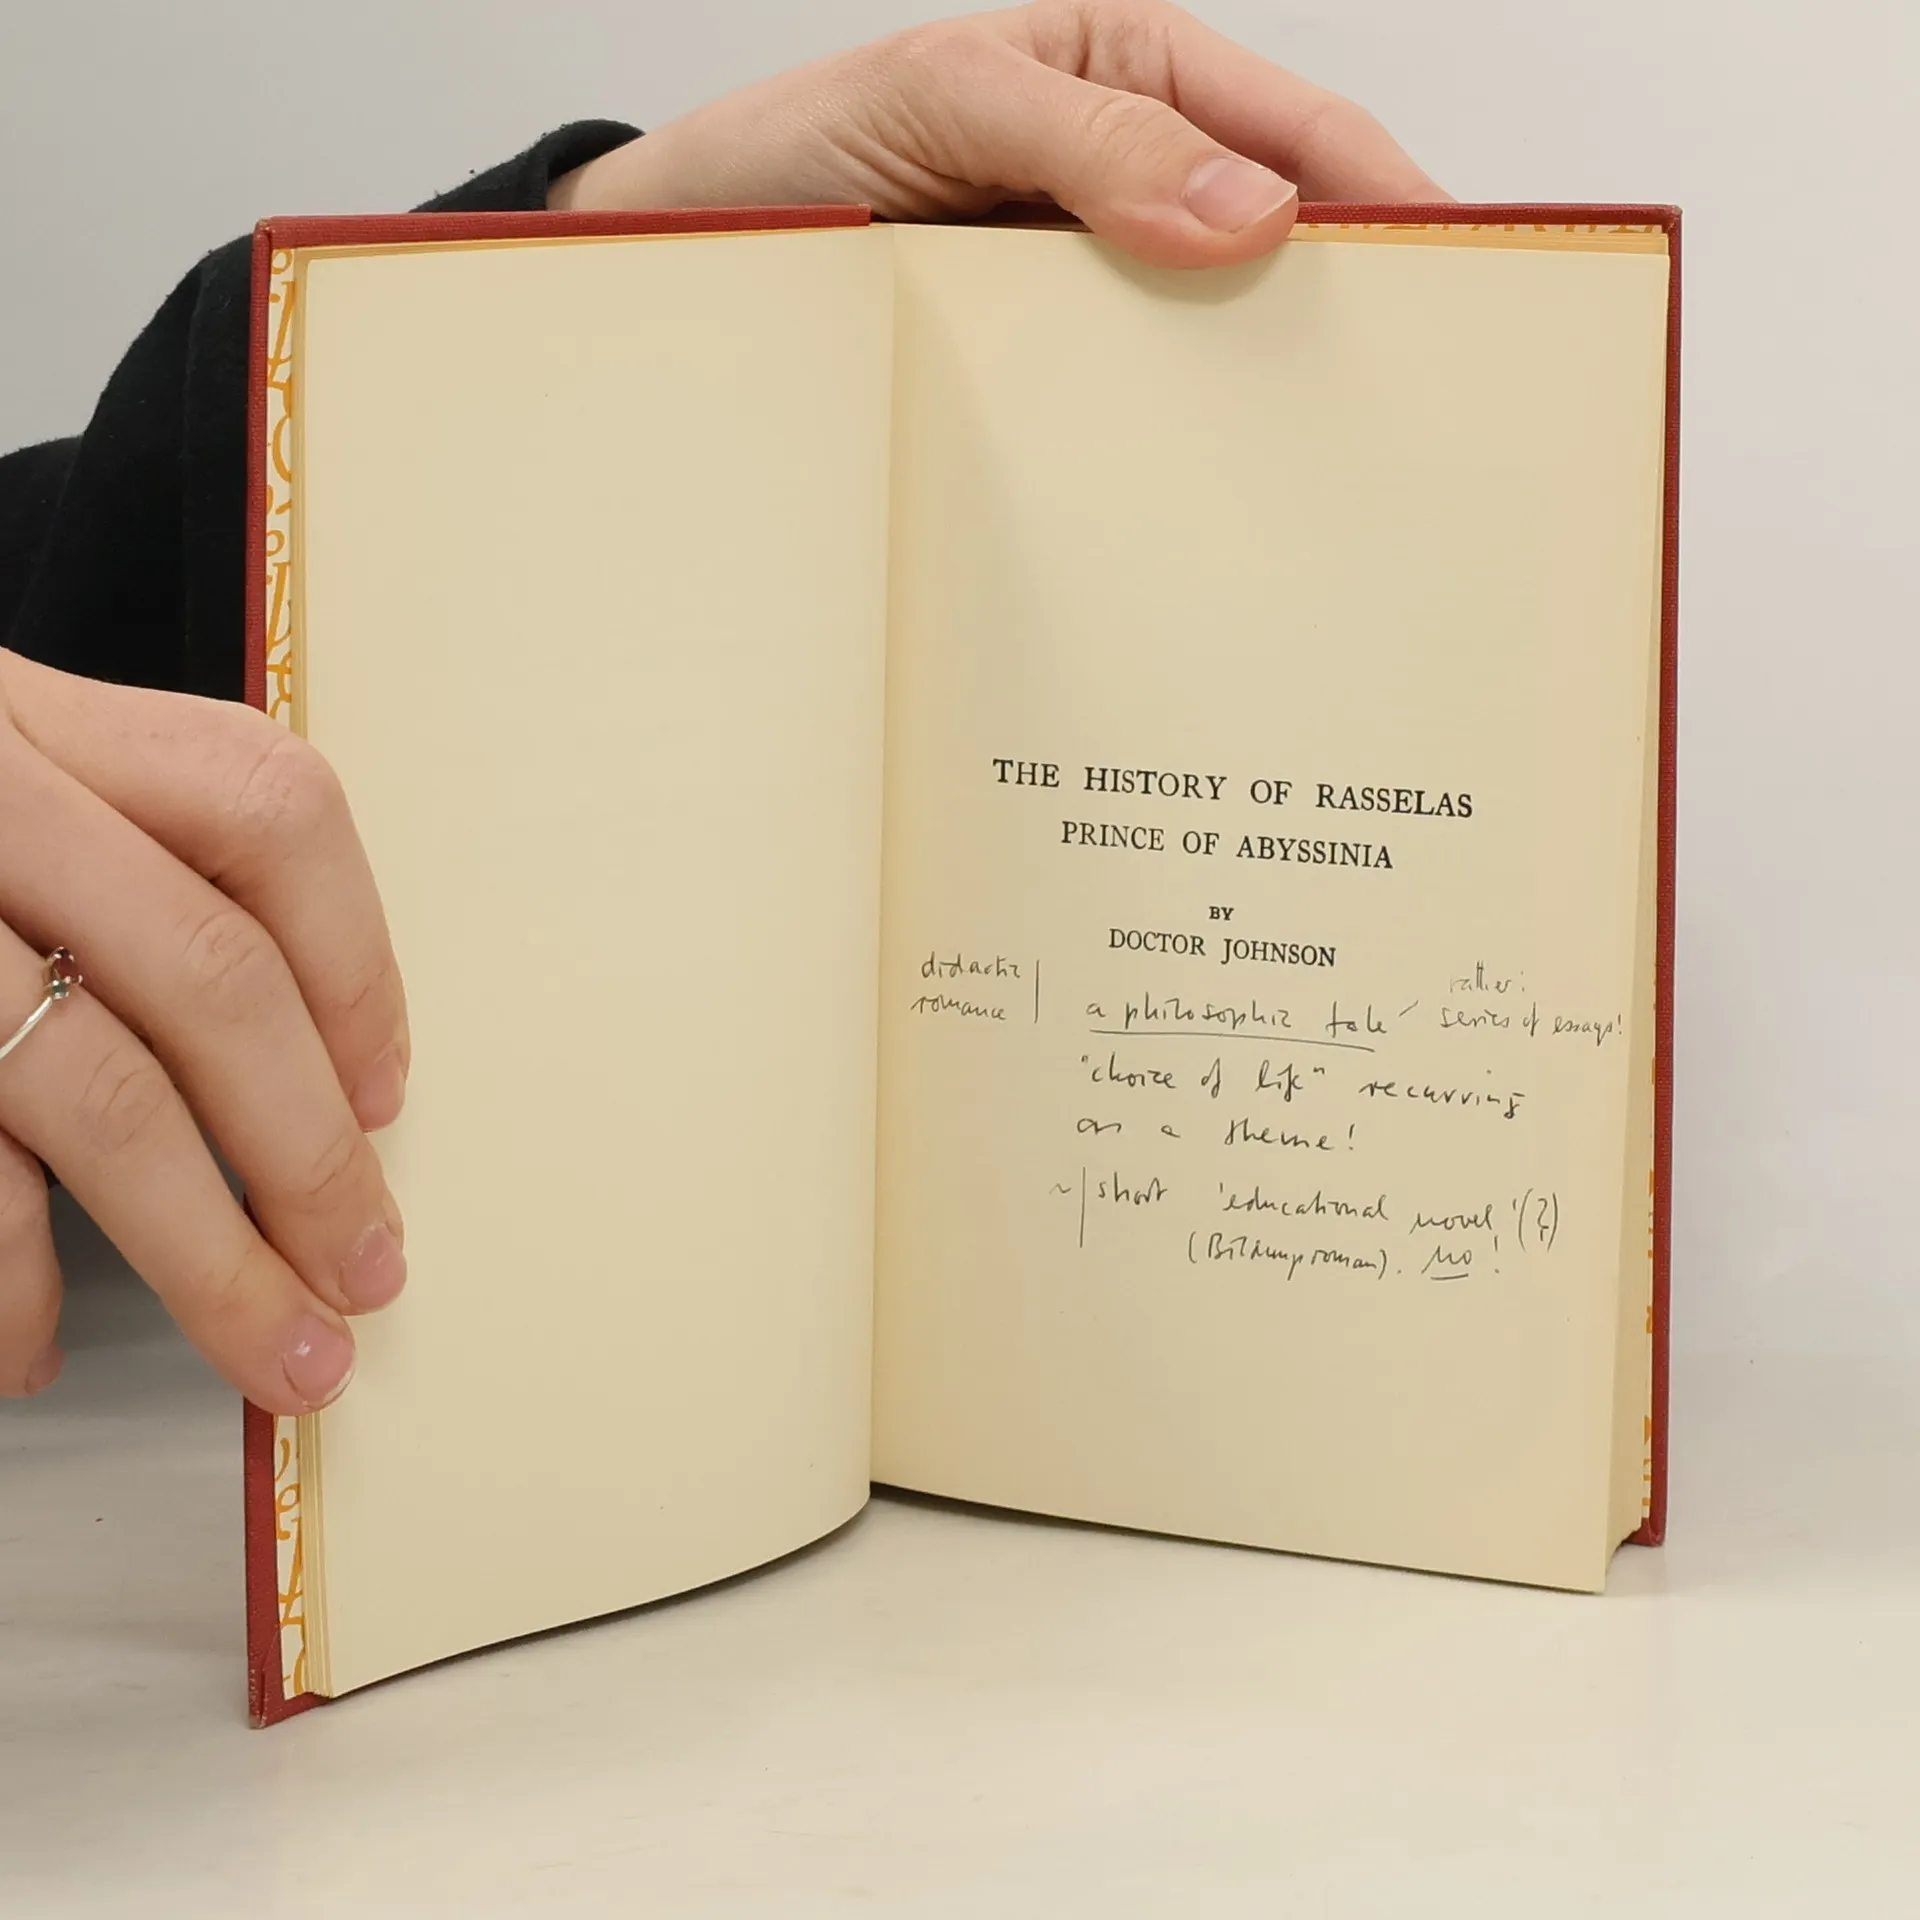 THE HISTORY OF RASSELAS
PRINCE OF ABYSSINIA
BY
DOCTOR JOHNSON
didactic
romance
a philosophic tale
rather:
series of essays!
"choice of life" recurring
as a theme!
~ short 'educational novel' (?)
(Bildungsroman). No!